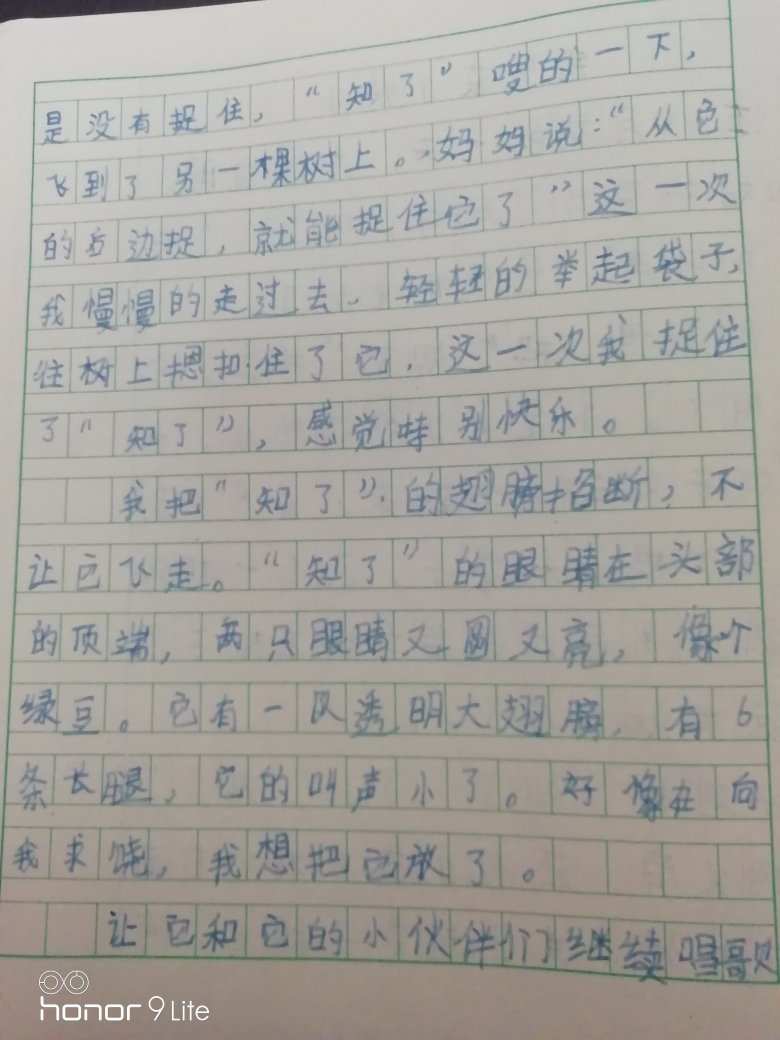 是没有捉住，“知了”嗖的一下，
飞到了另一棵树上。妈妈说：“从它
的右边捉，就能捉住它了”这一次
我慢慢的走过去，轻轻的举起袋子，
往树上摁扣住了它，这一次我捉住
了“知了”，感觉特别快乐。
我把“知了”的翅膀掐断，不
让它飞走。“知了”的眼睛在头部
的顶端，两只眼睛又圆又亮，像个
绿豆。它有一队透明大翅膀，有6
条长腿，它的叫声小了。好像在向
我求饶，我想把它放了。
让它和它的小伙伴们继续唱歌
honor 9 Lite